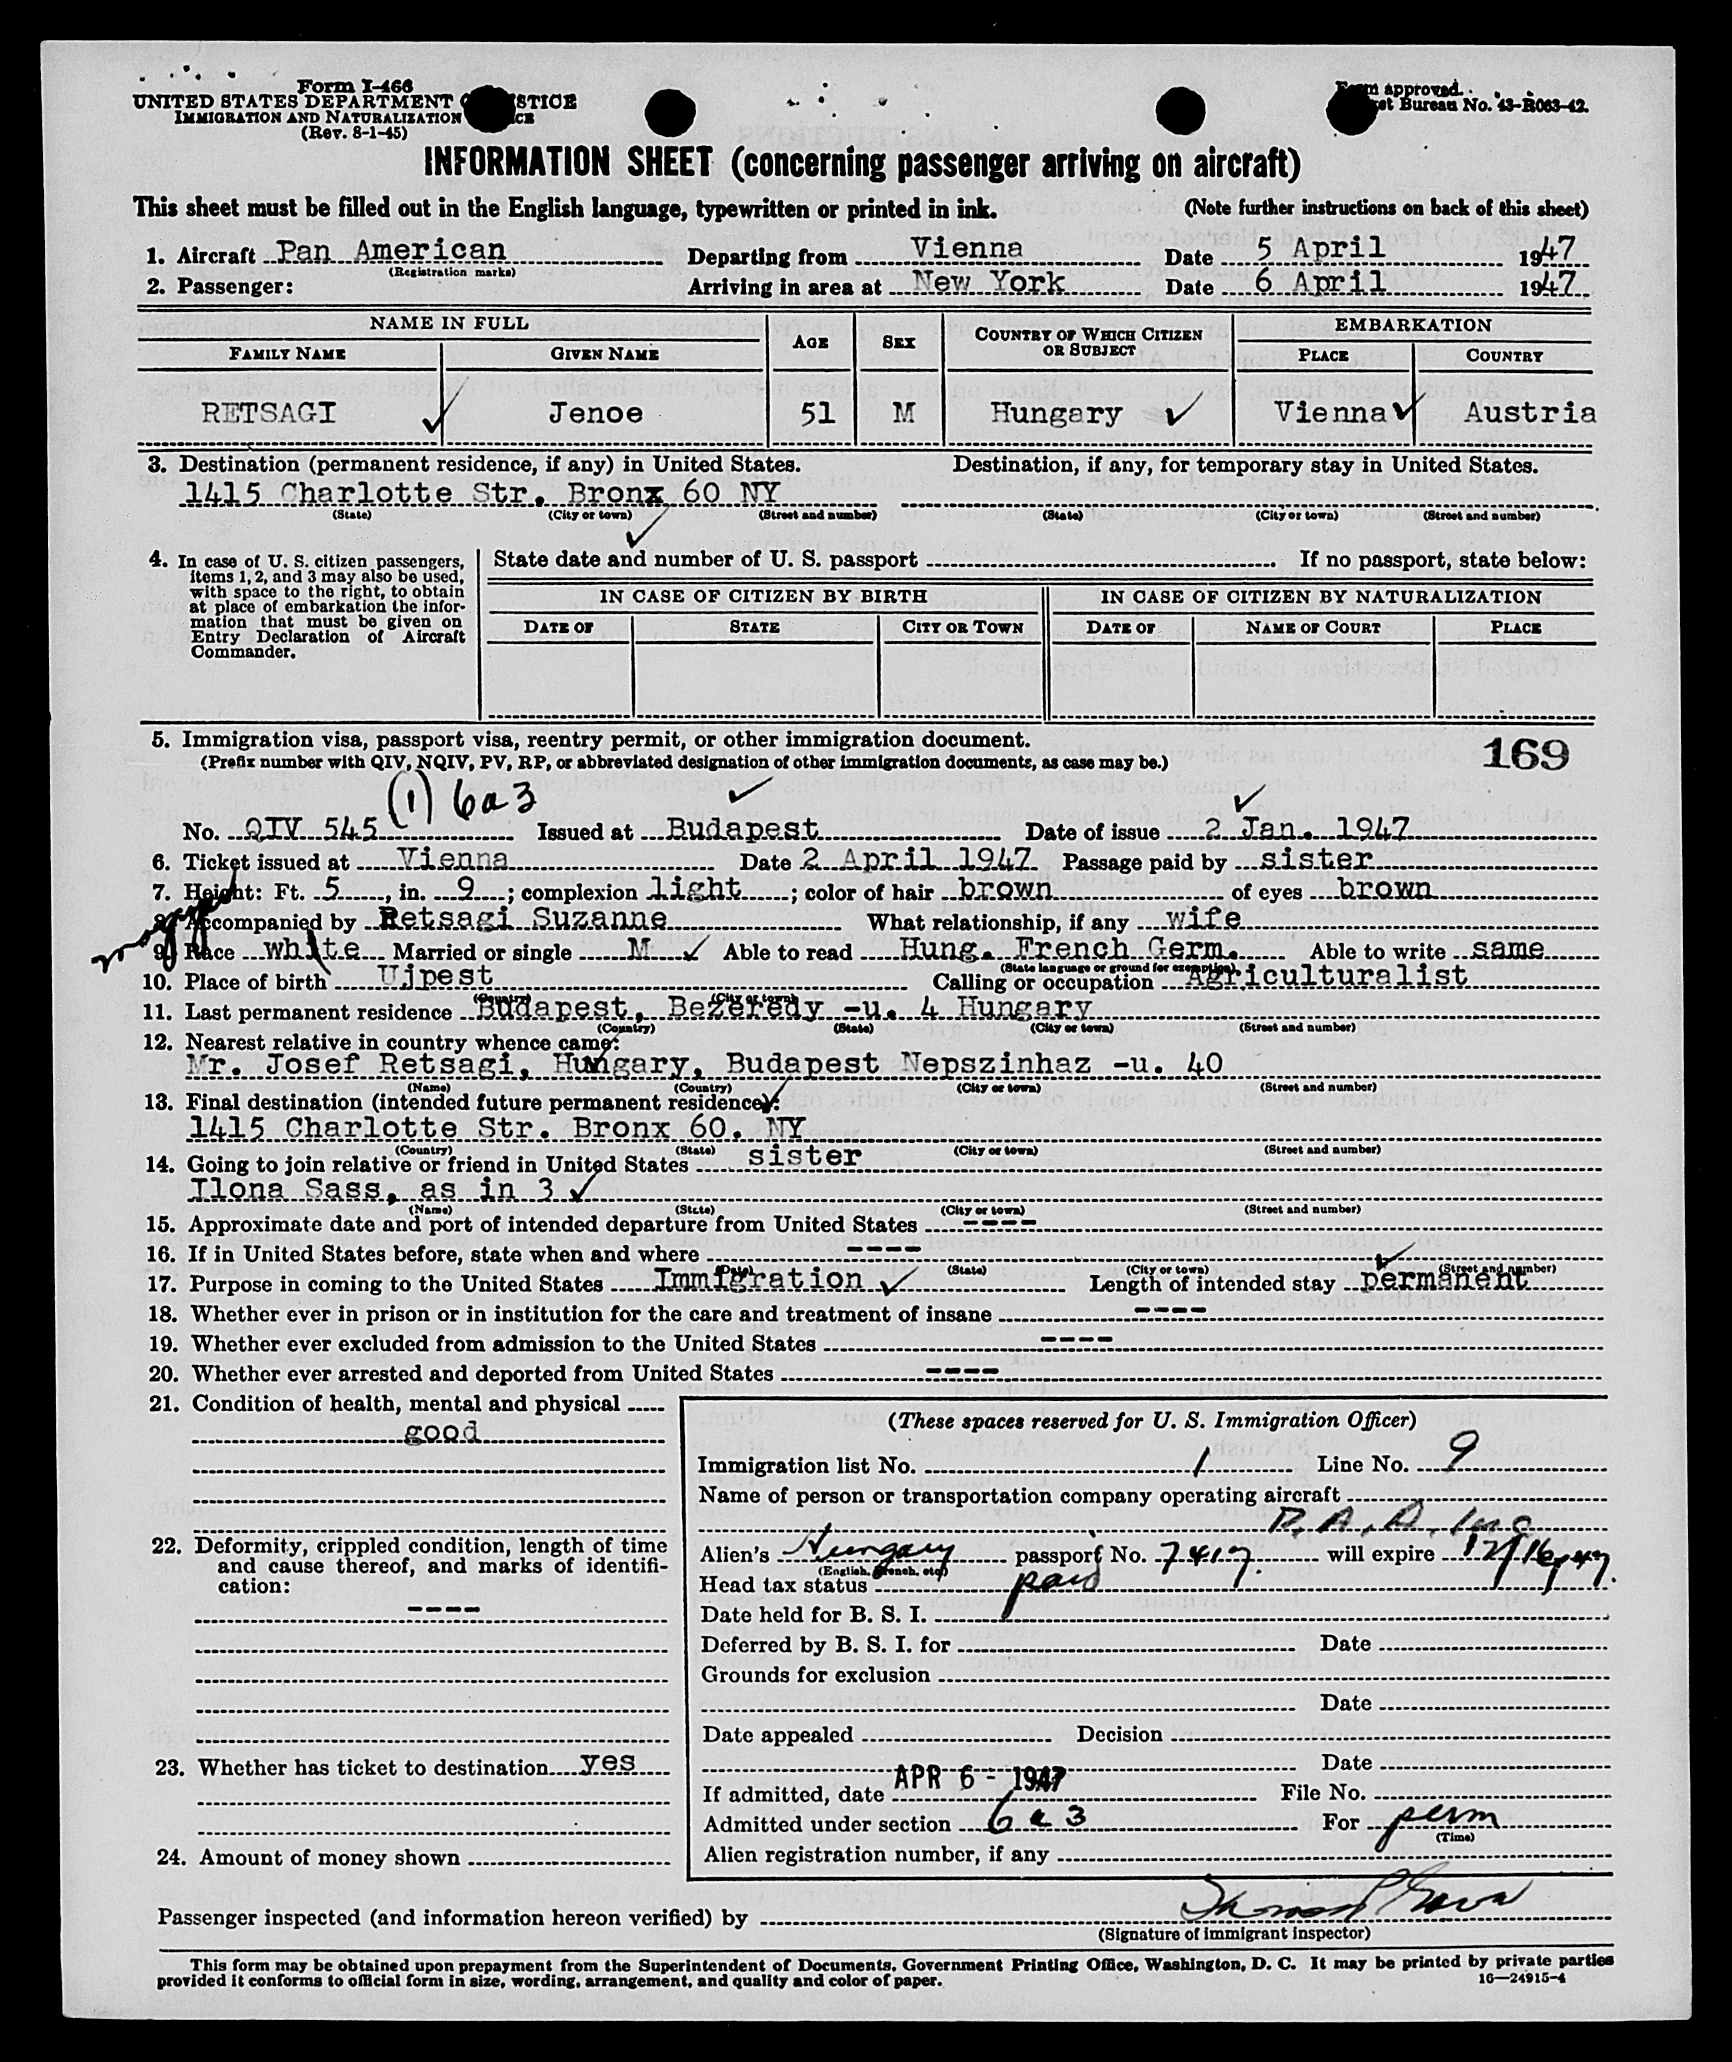 Form I-466
UNITED STATES DEPARTMENT STICE
IMMIGRATION AND NATURALIZATION CE
(Rev. 8-1-45)
Form approved.
et Bureau No. 43-R063-42.
INFORMATION SHEET (concerning passenger arriving on aircraft)
This sheet must be filled out in the English language, typewritten or printed in ink. (Note further instructions on back of this sheet)
1. Aircraft Pan American Departing from Vienna Date 5 April 1947
(Registration marks)
2. Passenger: Arriving in area at New York Date 6 April 1947
NAME IN FULL AGE SEX COUNTRY OF WHICH CITIZEN OR SUBJECT EMBARKATION
FAMILY NAME GIVEN NAME PLACE COUNTRY
RETSAGI Jenoe 51 M Hungary Vienna Austria
3. Destination (permanent residence, if any) in United States. Destination, if any, for temporary stay in United States.
1415 Charlotte Str. Bronx 60 NY
(State) (City or town) (Street and number) (State) (City or town) (Street and number)
4. In case of U. S. citizen passengers, items 1, 2, and 3 may also be used, with space to the right, to obtain at place of embarkation the information that must be given on Entry Declaration of Aircraft Commander.
State date and number of U. S. passport If no passport, state below:
IN CASE OF CITIZEN BY BIRTH IN CASE OF CITIZEN BY NATURALIZATION
DATE OF STATE CITY OR TOWN DATE OF NAME OF COURT PLACE
5. Immigration visa, passport visa, reentry permit, or other immigration document. 169
(Prefix number with QIV, NQIV, PV, RP, or abbreviated designation of other immigration documents, as case may be.)
(1) 6a3
No. QIV 545 Issued at Budapest Date of issue 2 Jan. 1947
6. Ticket issued at Vienna Date 2 April 1947 Passage paid by sister
7. Height: Ft. 5, in. 9; complexion light; color of hair brown of eyes brown
8. Accompanied by Retsagi Suzanne What relationship, if any wife
9. Race white Married or single M Able to read Hung. French Germ. Able to write same
(State language or ground for exemption)
10. Place of birth Ujpest Calling or occupation Agriculturalist
(Country) (City or town)
11. Last permanent residence Budapest, Bezeredy -u. 4 Hungary
(Country) (State) (City or town) (Street and number)
12. Nearest relative in country whence came:
Mr. Josef Retsagi, Hungary, Budapest Nepszinhaz -u. 40
(Name) (Country) (City or town) (Street and number)
13. Final destination (intended future permanent residence):
1415 Charlotte Str. Bronx 60. NY
(Country) (State) (City or town) (Street and number)
14. Going to join relative or friend in United States sister
Ilona Sass, as in 3
(Name) (State) (City or town) (Street and number)
15. Approximate date and port of intended departure from United States ----
16. If in United States before, state when and where ----
(Date) (State) (City or town) (Street and number)
17. Purpose in coming to the United States Immigration Length of intended stay permanent
18. Whether ever in prison or in institution for the care and treatment of insane ----
19. Whether ever excluded from admission to the United States ----
20. Whether ever arrested and deported from United States ----
21. Condition of health, mental and physical
good
22. Deformity, crippled condition, length of time and cause thereof, and marks of identification:
----
23. Whether has ticket to destination yes
24. Amount of money shown
(These spaces reserved for U. S. Immigration Officer)
Immigration list No. 1 Line No. 9
Name of person or transportation company operating aircraft
P. A. A. Inc
Alien's Hungary passport No. 7417. will expire 12/16/47.
(English, French, etc.)
Head tax status paid
Date held for B. S. I.
Deferred by B. S. I. for Date
Grounds for exclusion
Date
Date appealed Decision
Date
If admitted, date APR 6 - 1947 File No.
Admitted under section 6a3 For perm
(Time)
Alien registration number, if any
Passenger inspected (and information hereon verified) by
(Signature of immigrant inspector)
This form may be obtained upon prepayment from the Superintendent of Documents, Government Printing Office, Washington, D. C. It may be printed by private parties
provided it conforms to official form in size, wording, arrangement, and quality and color of paper. 16—24915-4